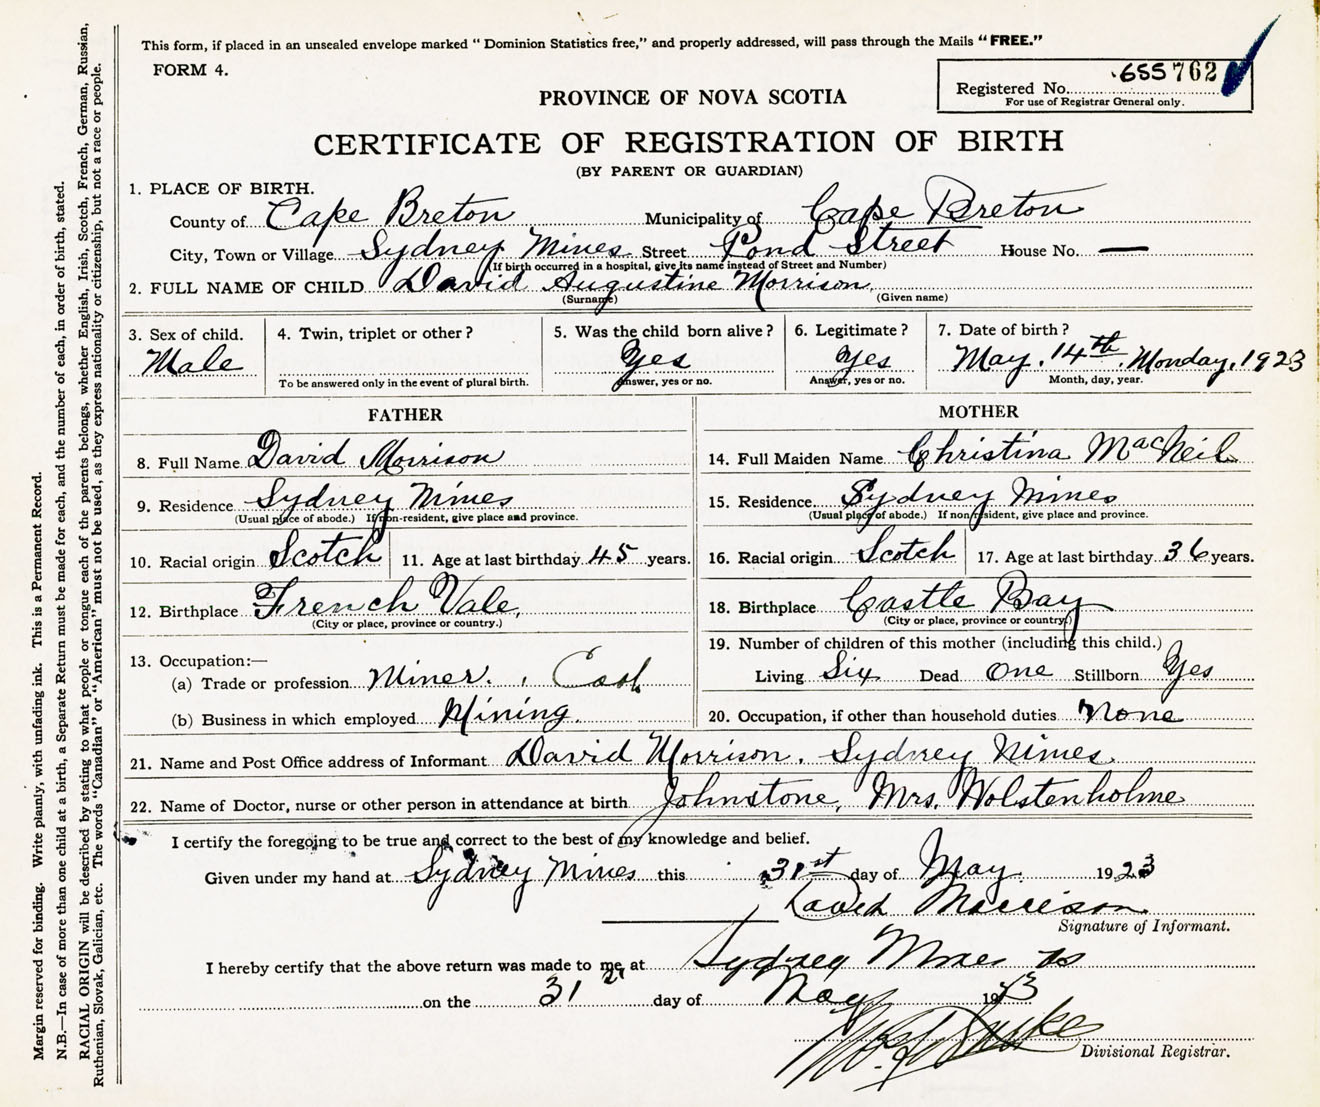 This form, if placed in an unsealed envelope marked "Dominion Statistics free," and properly addressed, will pass through the Mails "FREE."
FORM 4.
655762
Registered No.
For use of Registrar General only.
PROVINCE OF NOVA SCOTIA
CERTIFICATE OF REGISTRATION OF BIRTH
(BY PARENT OR GUARDIAN)
1. PLACE OF BIRTH.
County of Cape Breton Municipality of Cape Breton
City, Town or Village Sydney Mines Street Pond Street House No. —
(If birth occurred in a hospital, give its name instead of Street and Number)
2. FULL NAME OF CHILD David Augustine Morrison.
(Surname) (Given name)
3. Sex of child. 4. Twin, triplet or other? 5. Was the child born alive? 6. Legitimate? 7. Date of birth?
Male Yes Yes May. 14th. Monday. 1923
To be answered only in the event of plural birth. Answer, yes or no. Answer, yes or no. Month, day, year.
FATHER
8. Full Name David Morrison
9. Residence Sydney Mines
(Usual place of abode.) If non-resident, give place and province.
10. Racial origin Scotch 11. Age at last birthday 45 years.
12. Birthplace French Vale,
(City or place, province or country.)
13. Occupation:—
(a) Trade or profession Miner. , Coal
(b) Business in which employed Mining.
MOTHER
14. Full Maiden Name Christina MacNeil
15. Residence Sydney Mines
(Usual place of abode.) If non-resident, give place and province.
16. Racial origin Scotch 17. Age at last birthday 36 years.
18. Birthplace Castle Bay
(City or place, province or country.)
19. Number of children of this mother (including this child.)
Living Six Dead One Stillborn Yes
20. Occupation, if other than household duties None
21. Name and Post Office address of Informant David Morrison. Sydney Mines.
22. Name of Doctor, nurse or other person in attendance at birth Johnstone, Mrs. Wolstenholme
I certify the foregoing to be true and correct to the best of my knowledge and belief.
Given under my hand at Sydney Mines this 31st day of May 1923
David Morrison
Signature of Informant.
I hereby certify that the above return was made to me at Sydney Mines
on the 31 day of May 1923
Divisional Registrar.
Margin reserved for binding. Write plainly, with unfading ink. This is a Permanent Record.
N.B.—In case of more than one child at a birth, a Separate Return must be made for each, and the number of each, in order of birth, stated.
RACIAL ORIGIN will be described by stating to what people or tongue each of the parents belongs, whether English, Irish, Scotch, French, German, Russian,
Ruthenian, Slovak, Galician, etc. The words "Canadian" or "American" must not be used, as they express nationality or citizenship, but not a race or people.